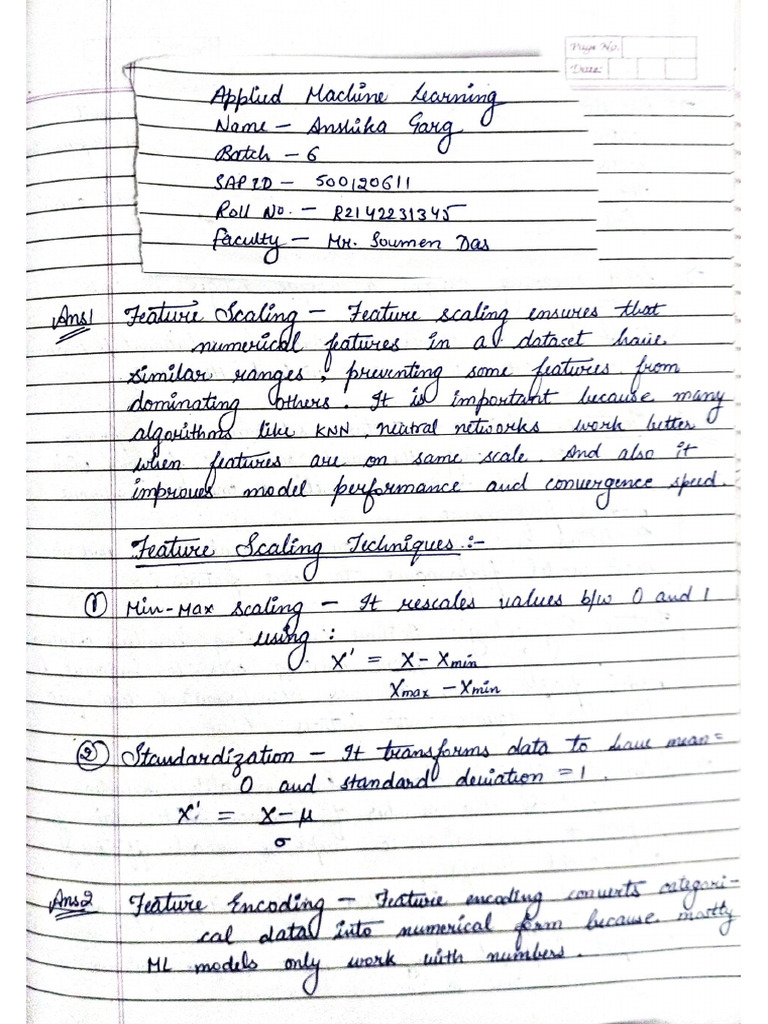 Page No.
Date:
Applied Machine Learning
Name – Anshika Garg
Batch – 6
SAP ID – 500120611
Roll No. – R2142231345
Faculty – Mr. Soumen Das
Ans1 Feature Scaling – Feature scaling ensures that
numerical features in a dataset have
similar ranges, preventing some features from
dominating others. It is important because many
algorithms like KNN, neutral networks work better
when features are on same scale. And also it
improves model performance and convergence speed.
Feature Scaling Techniques :-
① Min-Max scaling – It rescales values b/w 0 and 1
using :
X' = X – Xmin
Xmax – Xmin
② Standardization – It transforms data to have mean =
0 and standard deviation = 1.
X' = X – μ
σ
Ans2 Feature Encoding – Feature encoding converts categori-
cal data into numerical form because mostly
ML models only work with numbers.